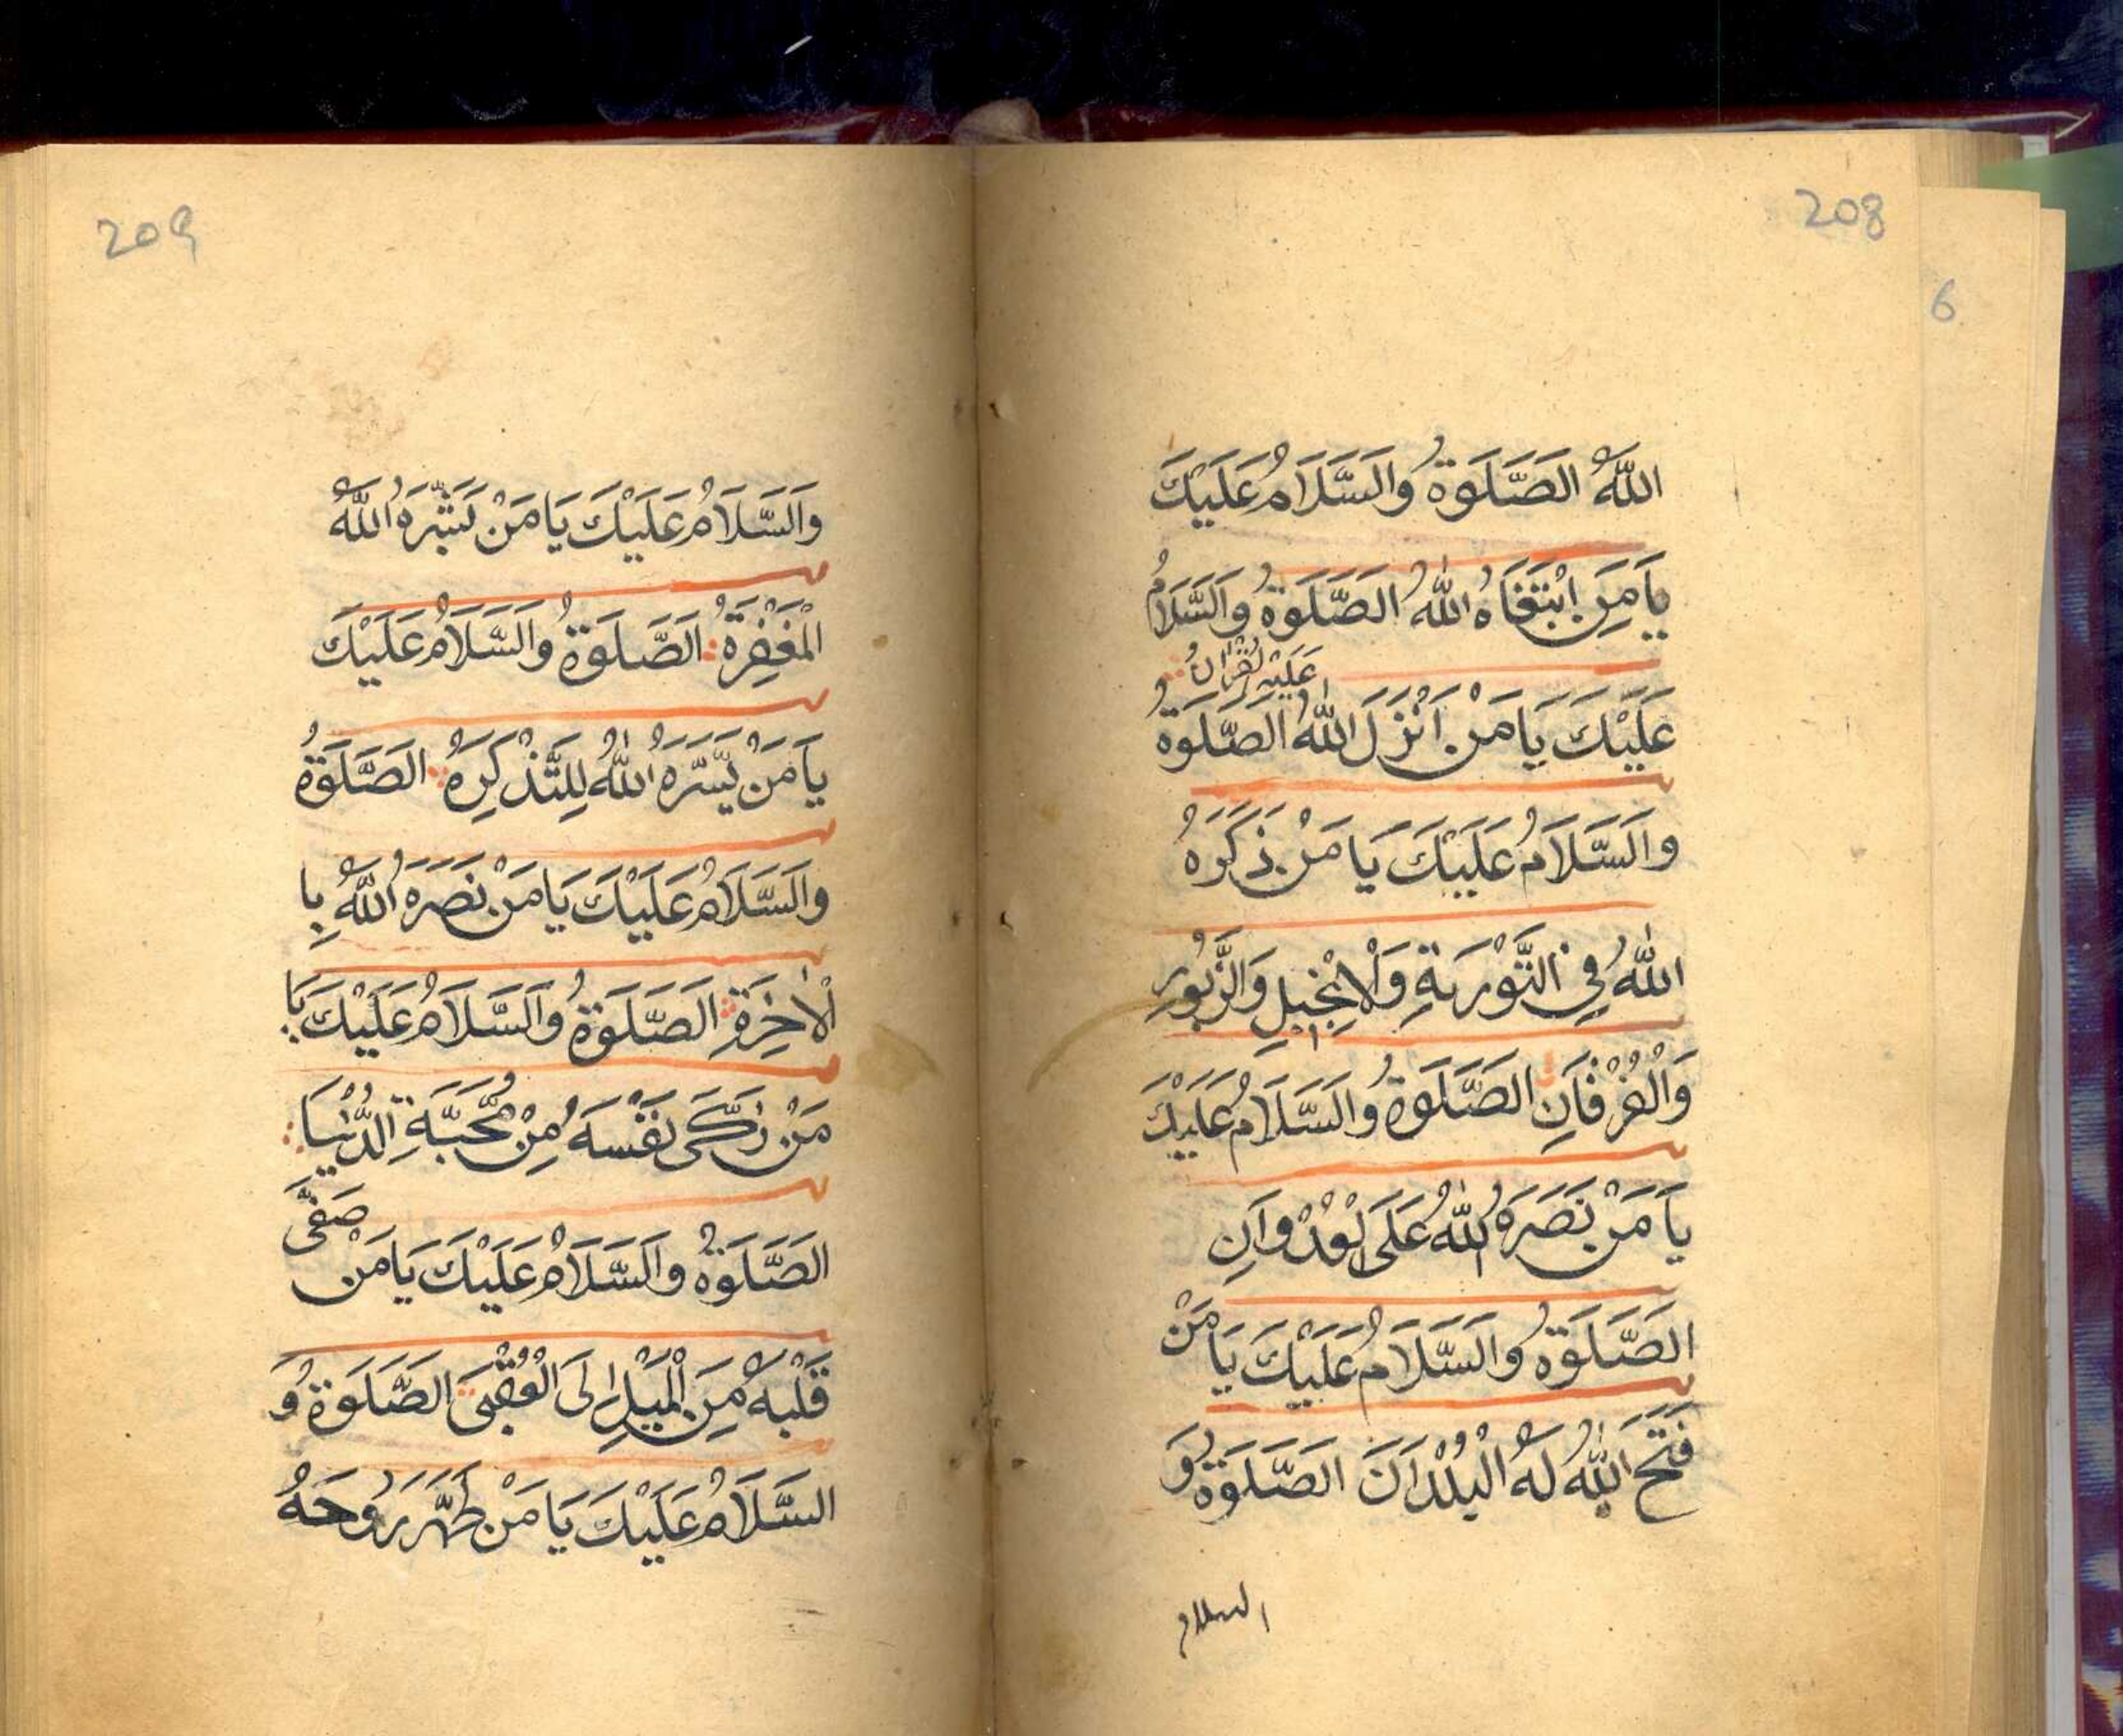 208
6
اللّٰهُ الصَّلَوةُ وَالسَّلَامُ عَلَيْكَ
يَا مَنِ ابْتَغَاهُ اللّٰهُ الصَّلَوةُ وَالسَّلَامُ
عَلَيْهِ الْقُرْاٰنُ
عَلَيْكَ يَا مَنْ اَنْزَلَ اللّٰهُ الصَّلَوةُ وَ
وَالسَّلَامُ عَلَيْكَ يَا مَنْ ذَكَرَهُ
اللّٰهُ فِي التَّوْرٰيةِ وَالْاِنْجِيلِ وَالزَّبُورِ
وَالْفُرْقَانِ الصَّلَوةُ وَالسَّلَامُ عَلَيْكَ
يَا مَنْ نَصَرَهُ اللّٰهُ عَلَى الْعُدْوَانِ
الصَّلَوةُ وَالسَّلَامُ عَلَيْكَ يَا مَنْ
فَتَحَ اللّٰهُ لَهُ الْبُلْدَانَ الصَّلَوةُ وَ
السلام
209
وَالسَّلَامُ عَلَيْكَ يَا مَنْ بَشَّرَهُ اللّٰهُ
الْمَغْفِرَةُ الصَّلَوةُ وَالسَّلَامُ عَلَيْكَ
يَا مَنْ يَسَّرَهُ اللّٰهُ لِلتَّذْكِرَةِ الصَّلَوةُ
وَالسَّلَامُ عَلَيْكَ يَا مَنْ نَصَرَهُ اللّٰهُ بِا
لْاٰخِرَةِ الصَّلَوةُ وَالسَّلَامُ عَلَيْكَ يَا
مَنْ زَكّٰى نَفْسَهُ مِنْ مَحَبَّةِ الدُّنْيَا
الصَّلَوةُ وَالسَّلَامُ عَلَيْكَ يَا مَنْ صَفَّى
قَلْبَهُ مِنَ الْمَيْلِ اِلَى الْعُقْبَى الصَّلَوةُ وَ
السَّلَامُ عَلَيْكَ يَا مَنْ طَهَّرَ رُوحَهُ